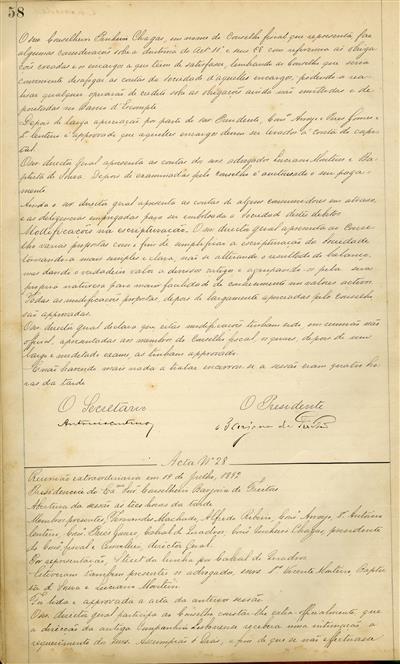 58
O snr Conselheiro Pinheiro Chagas, em nome do Conselho fiscal que representa faz
algumas considerações sobre a doutrina do Artº 11º e seus §§ com referencia ás obriga
ções creadas e os encargos a que tem de satisfazer, lembrando ao Conselho que seria
conveniente desafogar as contas da Sociedade d'aquelles encargos, podendo-se rea-
lisar qualquer operação de credito sobre as obrigações ainda não emittidas e de-
positadas no Banco d'
Depois de larga apreciação por parte do snr Presidente, Consº Arroyo, Peres Gomes e
Sr Centeno é approvado que aquelles encargos devem ser levados á conta de capi-
tal.
O snr director geral apresenta as contas dos snrs advogados Luciano Monteiro e Ba-
ptista de Sousa. Depois de examinadas pelo conselho é auctorisado o seu paga-
mento
Ainda o snr director geral apresenta as contas de alguns consumidores em atraso,
e as deligencias empregadas para ser embolsada a Sociedade d'estes debitos
Modificação na escripturação. O snr director geral apresenta ao Conse-
lho varias propostas com o fim de simplificar a escripturação da Sociedade
tornando-a mais simples e clara, não se alterando o resultado do balanço,
mas dando o verdadeiro valor a diversos artigos e agrupando-os pela sua
propria natureza para maior facilidade de conhecimento nos valores activos.
Todas as modificações propostas, depois de largamente apreciadas pelo Conselho
são approvadas.
O snr director geral declara que estas modificações tinham sido, em reunião não
official, apresentadas aos membros do Conselho fiscal, os quaes, depois de um
largo e exame, as tinham approvado.
E não havendo mais nada a tratar encerrou-se a sessão eram quatro ho-
ras da tarde
O Secretario O Presidente
Antonio Centeno Barjona de Freitas
Acta Nº 28
Reunião extraordinaria em 14 de Julho, 1892
Presidencia do Exmo Snr Conselheiro Barjona de Freitas
Abertura da sessão ás tres horas da tarde
Membros presentes, Fernandes Machado, Alfredo Ribeiro, Consº Arroyo, Dr Antonio
Centeno, Consº Peres Gomes, Cabral de Quadros, Consº Pinheiro Chagas, presidente
do Consº fiscal e director Geral.
Por representação, Street da Cunha por Cabral de Quadros
Estiveram tambem presentes os advogados, snrs Dr Vicente Monteiro, Baptis-
ta de Sousa e Luciano Monteiro
Foi lida e approvada a acta da anterior sessão.
O snr director geral participa ao Conselho constar-lhe extra-officialmente, que
a direcção da antiga Companhia Lisbonense recebera uma intimação, a
requerimento dos snrs. Assumpção &, a fim de que se não effectuasse